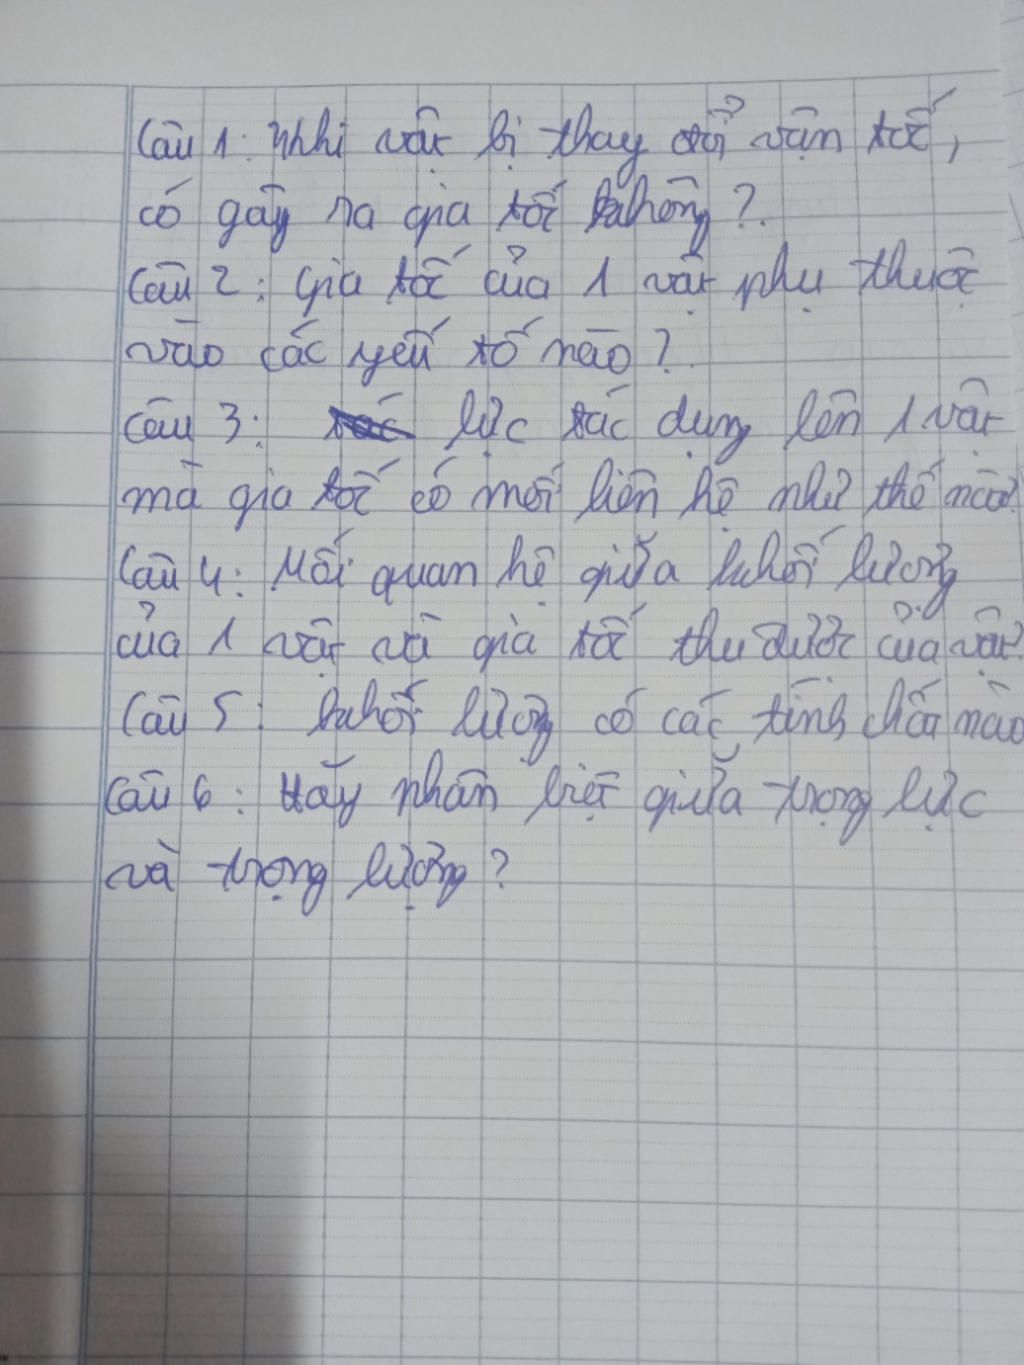 Câu 1: Khi vật bị thay đổi vận tốc,
có gây ra gia tốc không?
Câu 2: Gia tốc của 1 vật phụ thuộc
vào các yếu tố nào?
Câu 3: lực tác dụng lên 1 vật
mà gia tốc có mối liên hệ như thế nào?
Câu 4: Mối quan hệ giữa khối lượng
của 1 vật và gia tốc thu được của vật?
Câu 5: khối lượng có các tính chất nào
Câu 6: Hãy phân biệt giữa trọng lực
và trọng lượng?